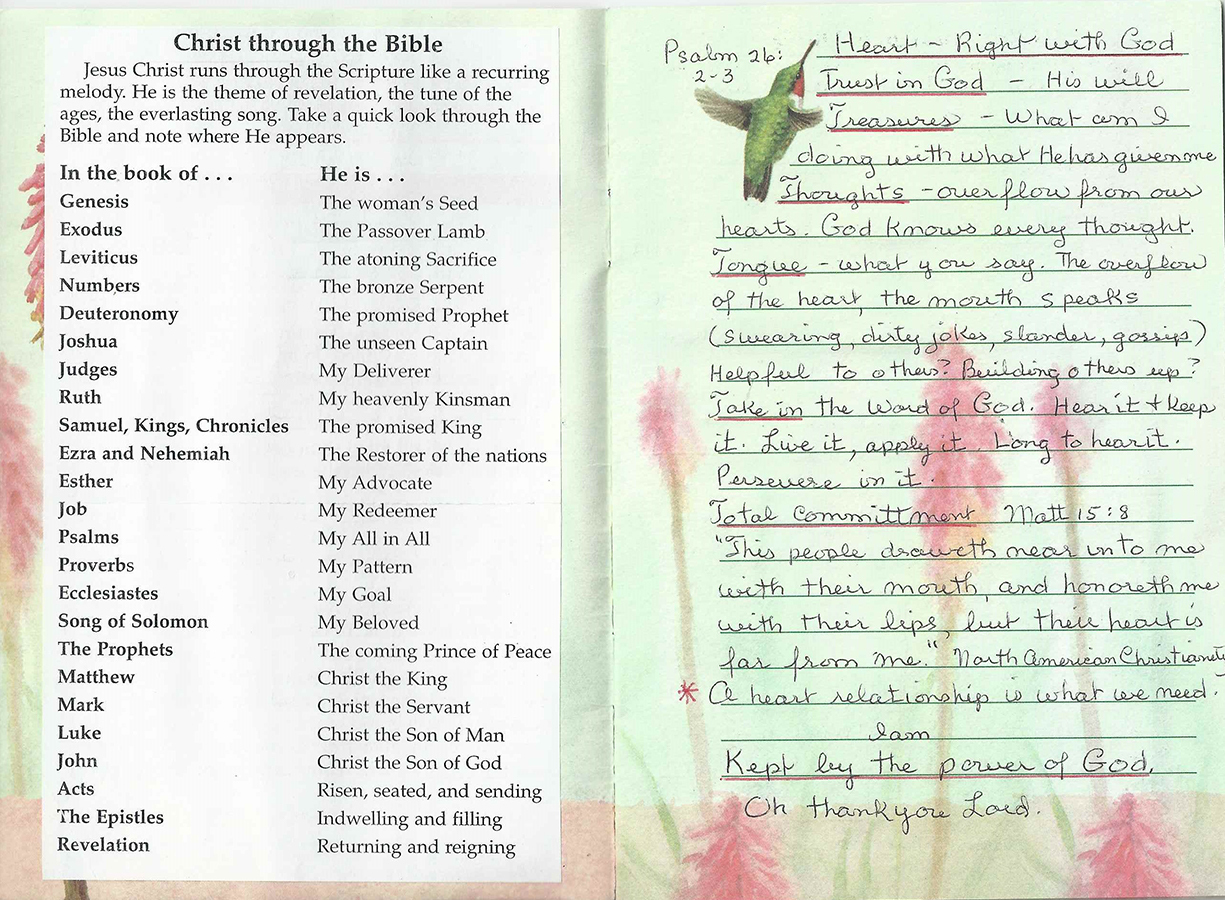 Christ through the Bible
Jesus Christ runs through the Scripture like a recurring
melody. He is the theme of revelation, the tune of the
ages, the everlasting song. Take a quick look through the
Bible and note where He appears.
In the book of . . . He is . . .
Genesis The woman's Seed
Exodus The Passover Lamb
Leviticus The atoning Sacrifice
Numbers The bronze Serpent
Deuteronomy The promised Prophet
Joshua The unseen Captain
Judges My Deliverer
Ruth My heavenly Kinsman
Samuel, Kings, Chronicles The promised King
Ezra and Nehemiah The Restorer of the nations
Esther My Advocate
Job My Redeemer
Psalms My All in All
Proverbs My Pattern
Ecclesiastes My Goal
Song of Solomon My Beloved
The Prophets The coming Prince of Peace
Matthew Christ the King
Mark Christ the Servant
Luke Christ the Son of Man
John Christ the Son of God
Acts Risen, seated, and sending
The Epistles Indwelling and filling
Revelation Returning and reigning
Psalm 26:
2-3
Heart - Right with God
Trust in God - His will
Treasures - What am I
doing with what He has given me
Thoughts - overflow from our
hearts. God knows every thought.
Tongue - what you say. The overflow
of the heart, the mouth speaks
(swearing, dirty jokes, slander, gossips)
Helpful to others? Building others up?
Take in the Word of God. Hear it + keep
it. Live it, apply it. Long to hear it.
Persevere in it.
Total Committment Matt 15:8
"This people draweth near unto me
with their mouth, and honoreth me
with their lips, but their heart is
far from me." North American Christianity
* A heart relationship is what we need.
I am
Kept by the power of God.
Oh thank you Lord.